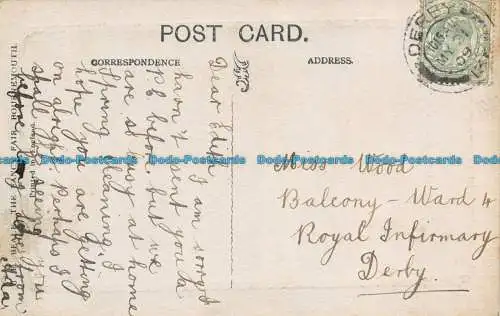 POST CARD.
CORRESPONDENCE
ADDRESS.
Dear Edith
I am sorry I
havn't sent you a
P.C. before but we
are so busy at home
Spring cleaning. I
hope you are getting
on alright perhaps I
shall be seeing you
before long love from
Miss Wood
Balcony - Ward 4
Royal Infirmary
Derby.
DERBY
09
FANCY FAIR, BOURNEMOUTH.
Dodo-Postcards Dodo-Postcards Dodo-Postcards Dodo-Postcards Dodo-Postcards